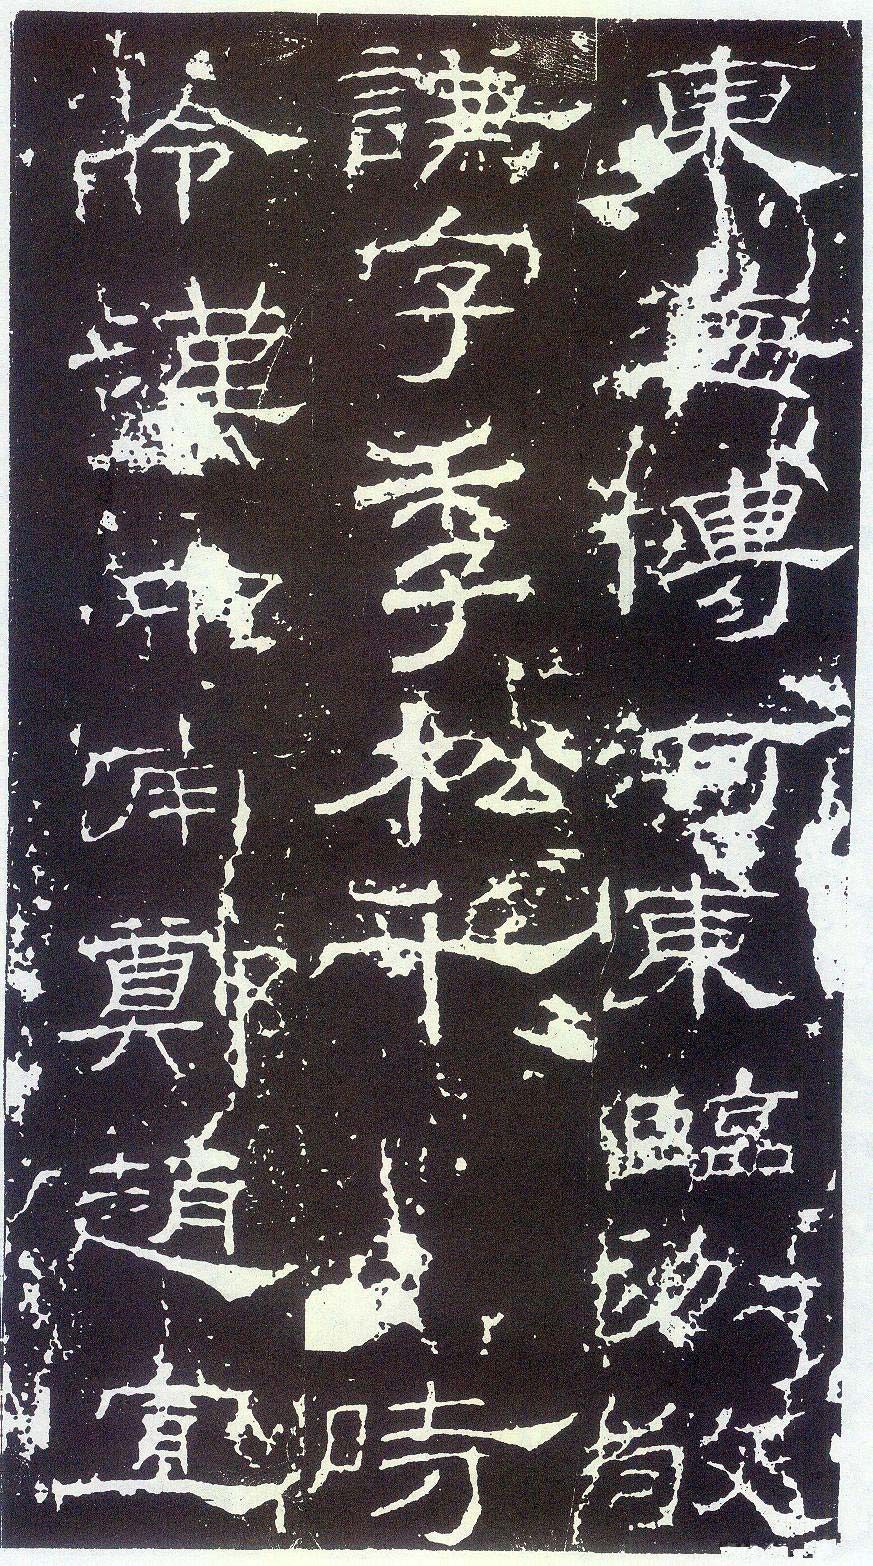 東海傅河東臨汾敬
謙字季松時
令漢中南鄭趙宣